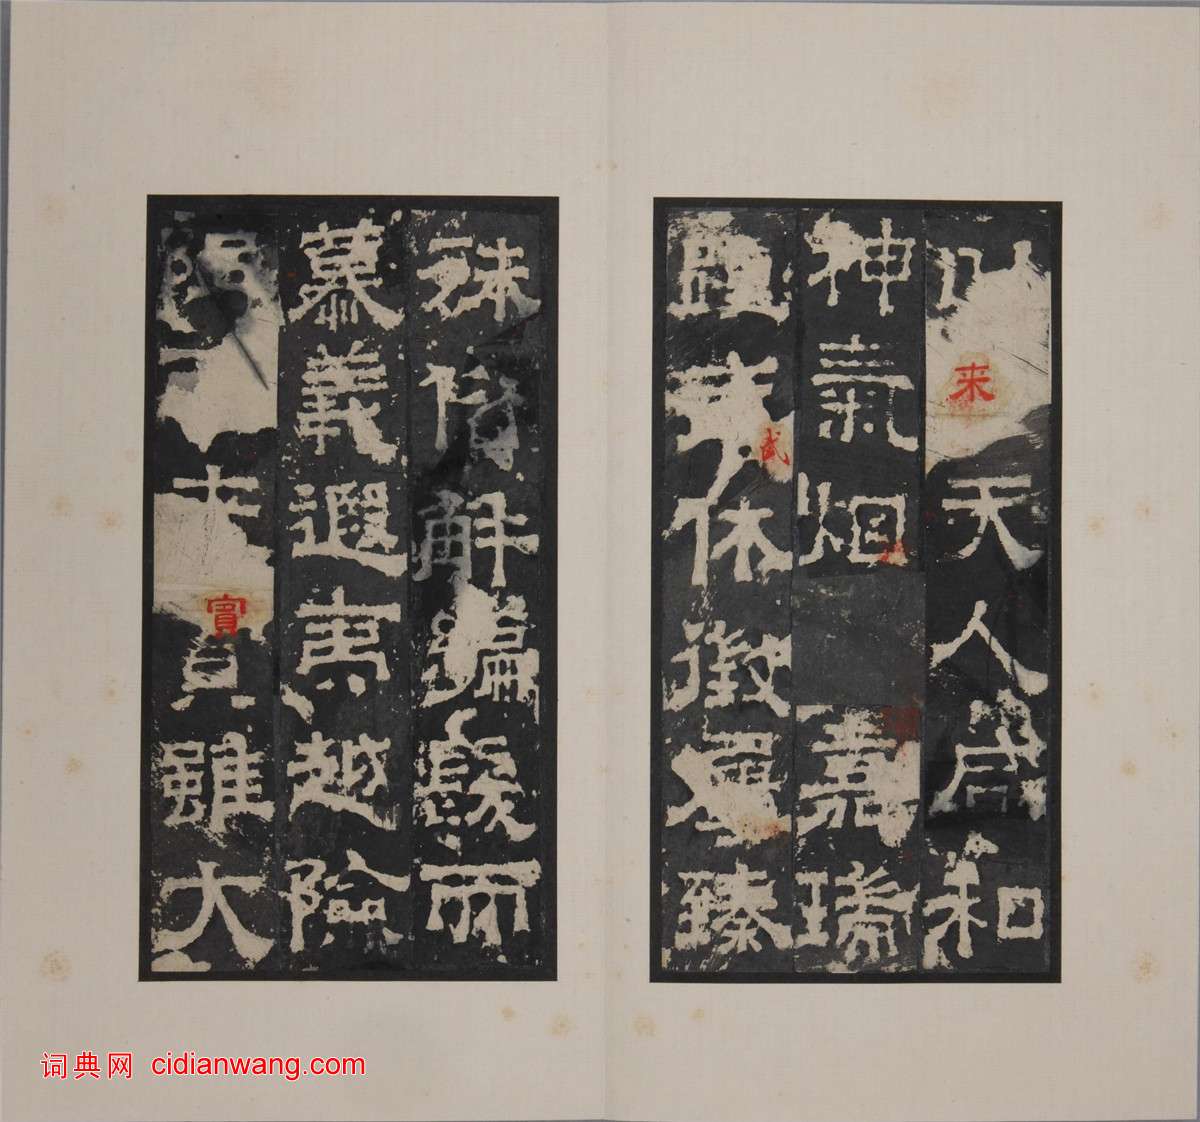 来天人咸和
神氣烟嘉瑞
休徵屢臻
武
殊俗解編髮而
慕義遐寓越險
實雖大
词典网 cidianwang.com